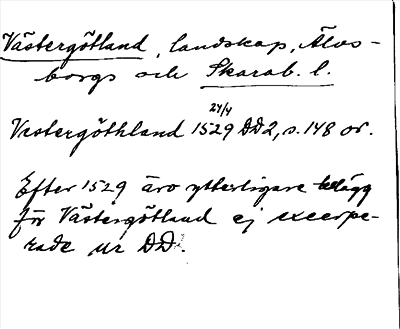 Västergötland, landskap, Älvs-
borgs och Skarab. l.
24/4
Vestergöthland 1529 DD2, s. 148 or.
Efter 1529 äro ytterligare belägg
för Västergötland ej excerpe-
rade ur DD.